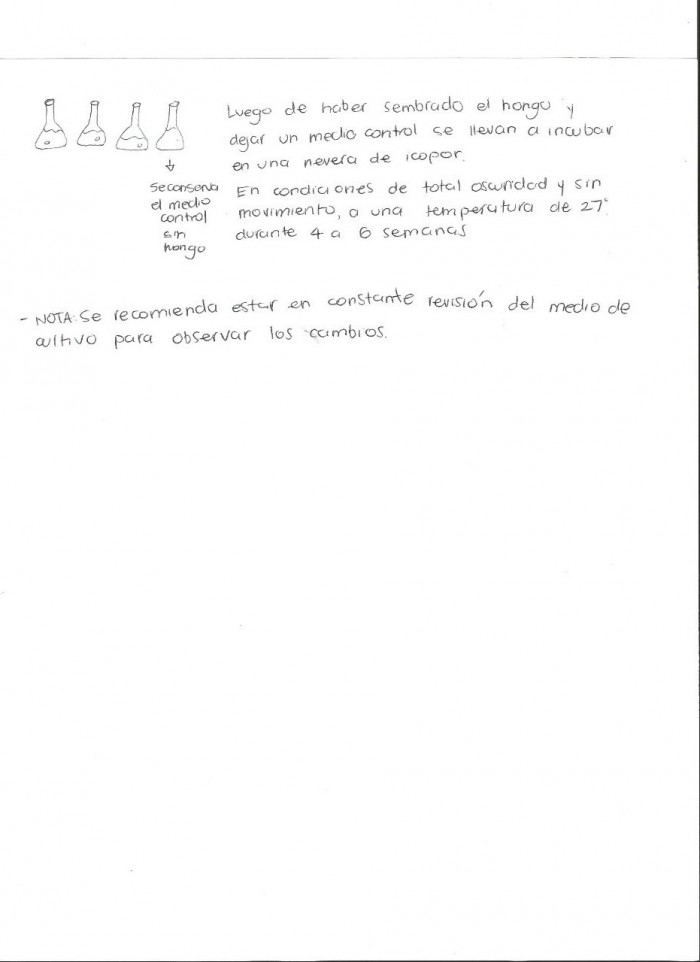 Luego de haber sembrado el hongo y
dejar un medio control se llevan a incubar
en una nevera de icopor.
En condiciones de total oscuridad y sin
movimiento, a una temperatura de 27°
durante 4 a 6 semanas
Se conserva
el medio
control
sin
hongo
- NOTA: Se recomienda estar en constante revisión del medio de
cultivo para observar los cambios.